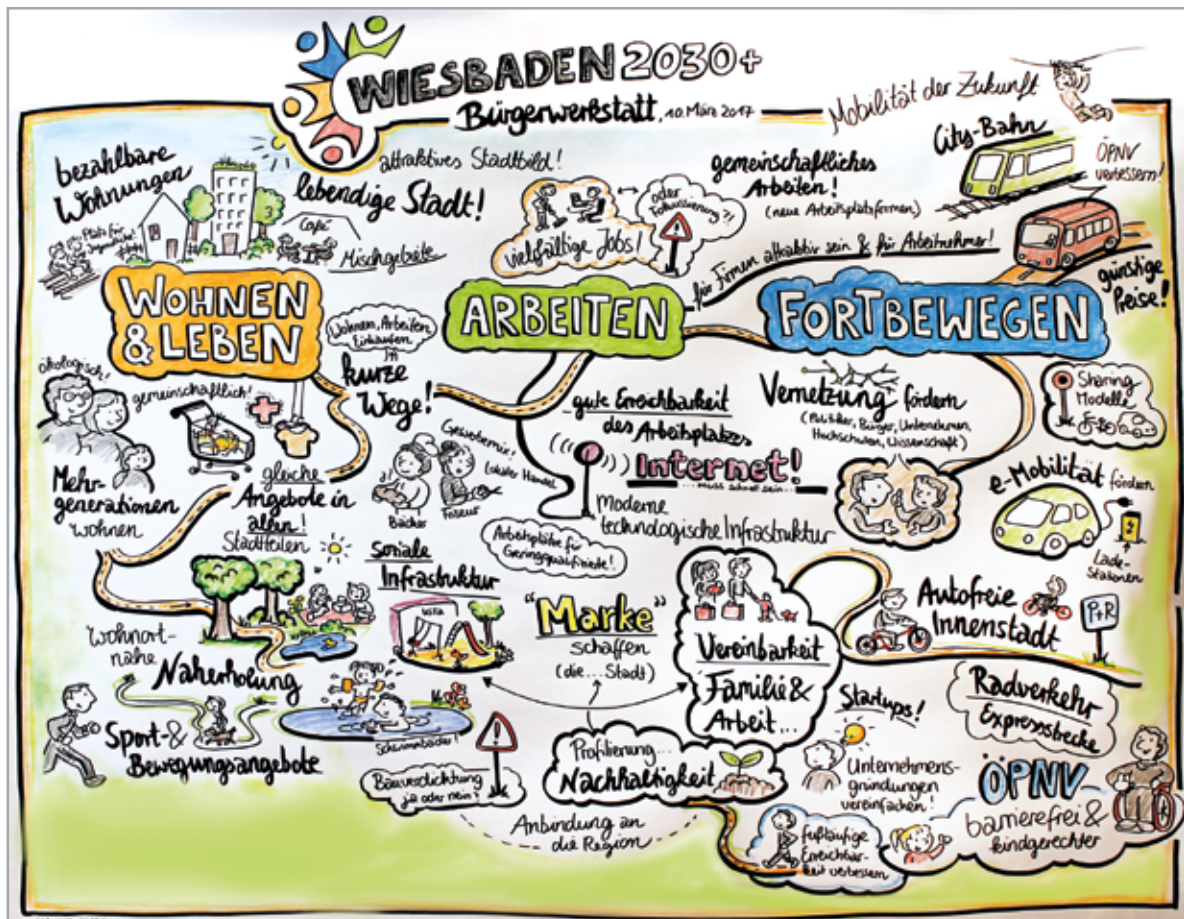 WIESBADEN 2030+
Bürgerwerkstatt, 10. März 2017
bezahlbare
Wohnungen
Platz für
Jugendliche!
attraktives Stadtbild!
lebendige Stadt!
Café
Mischgebiete
WOHNEN
& LEBEN
ökologisch!
gemeinschaftlich!
Mehr-
generationen
wohnen
gleiche
Angebote in
allen!
Stadtteilen
Wohnen, Arbeiten,
Einkaufen
kurze
Wege!
Gewerbemix!
lokaler Handel
Bäcker
Friseur
soziale
Infrastruktur
KITA
wohnort-
nahe
Naherholung
Sport- &
Bewegungsangebote
Schwimmbäder!
Bauverdichtung
ja oder nein?
vielfältige Jobs!
oder
Fokussierung?!
gemeinschaftliches
Arbeiten!
(neue Arbeitsplatzformen)
für Firmen attraktiv sein & für Arbeitnehmer!
ARBEITEN
gute Erreichbarkeit
des Arbeitsplatzes
Internet!
...muss schnell sein...
moderne
technologische Infrastruktur
Arbeitsplätze für
Geringqualifizierte!
"Marke"
schaffen
(die...Stadt)
Vereinbarkeit
Familie &
Arbeit...
Profilierung...
Nachhaltigkeit
Anbindung an
die Region
Startups!
Unternehmens-
gründungen
vereinfachen!
Mobilität der Zukunft
City-Bahn
ÖPNV
verbessern!
günstige
Preise!
FORTBEWEGEN
Vernetzung fördern
(Politiker, Bürger, Unternehmen,
Hochschulen, Wissenschaft)
Sharing
Modelle
e-Mobilität fördern
Lade-
Stationen
Autofreie
Innenstadt
P+R
Radverkehr
Expressstrecke
ÖPNV
barrierefrei &
kindgerechter
fußläufige
Erreichbar-
keit verbessern